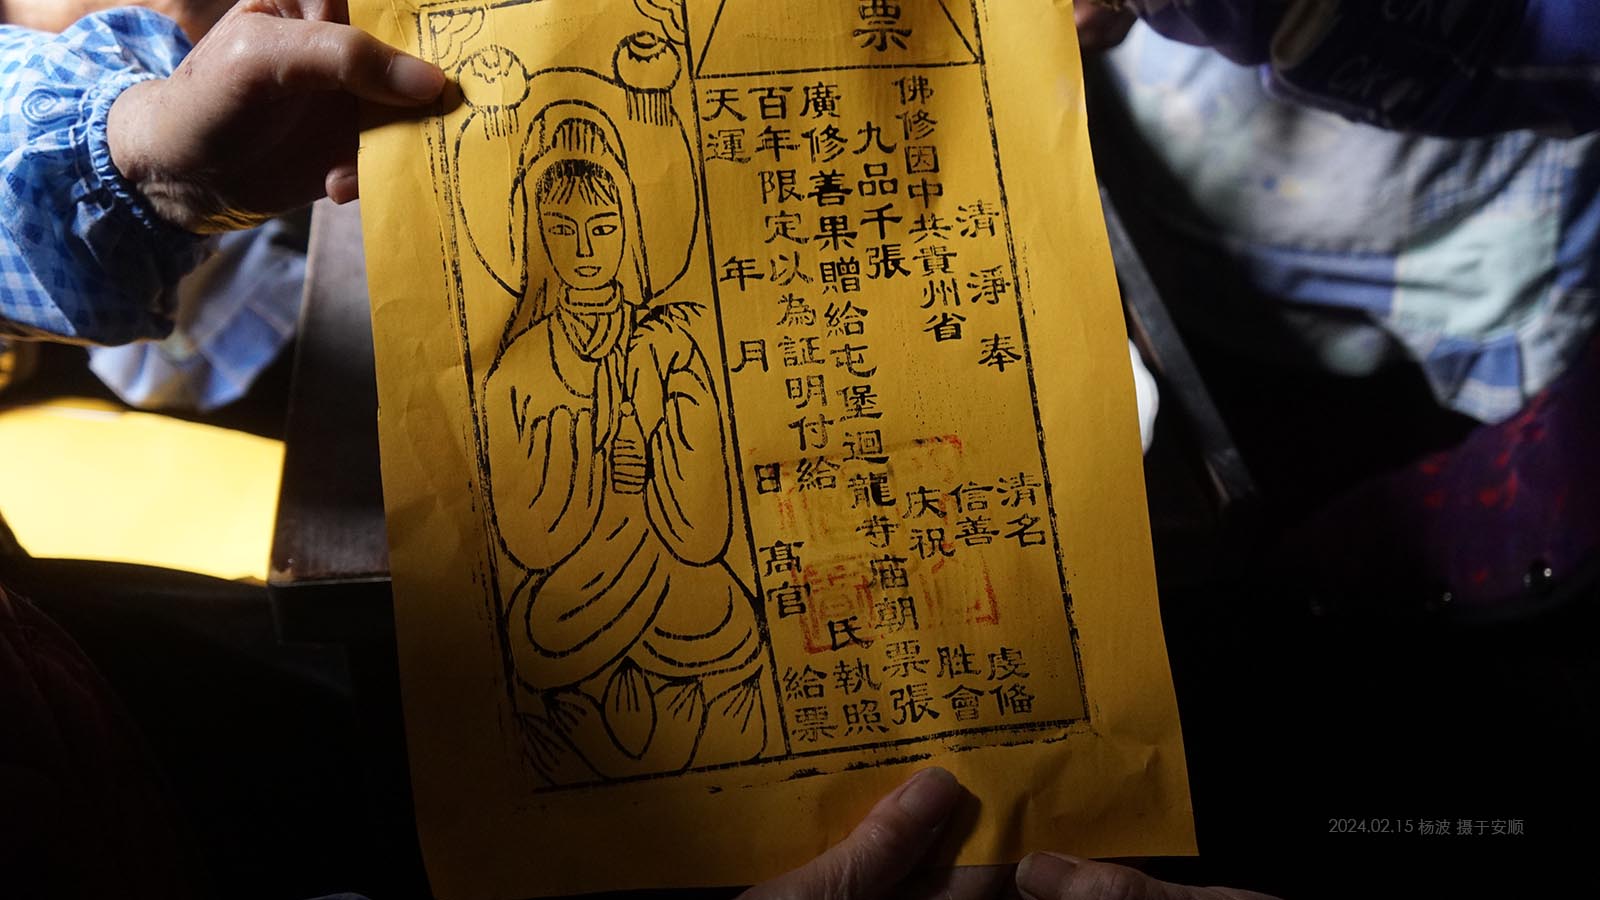 票
清淨奉 清名
佛修因中共貴州省 信善 虔俻
九品千張 庆祝 胜會
廣修善果贈給屯堡迴龍寺庙朝票張
百年限定以為証明付給 氏執照
天運 年 月 日 高官 給票
2024.02.15 杨波 摄于安顺